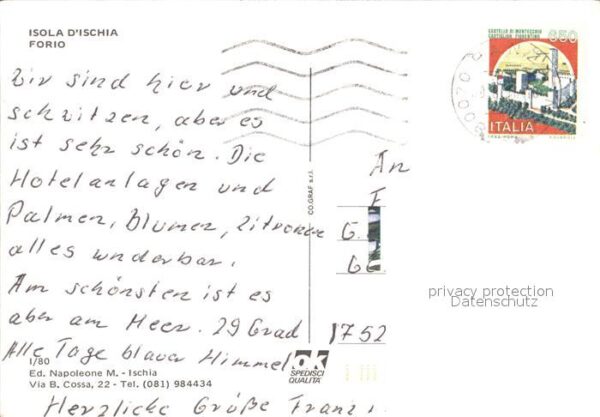 ISOLA D'ISCHIA
FORIO
CASTELLO DI MONTECCHIO
CASTIGLION FIORENTINO
650
ITALIA
Wir sind hier und
schwitzen, aber es
ist sehr schön. Die
Hotelanlagen und
Palmen, Blumen, Zitronen
alles wunderbar.
Am schönsten ist es
aber am Meer. 29 Grad
Alle Tage blauer Himmel
Herzliche Grüße Franz
An
F
G.
1752
CO.GRAF s.r.l.
privacy protection
Datenschutz
I/80
Ed. Napoleone M. - Ischia
Via B. Cossa, 22 - Tel. (081) 984434
OK
SPEDISCI
QUALITÀ